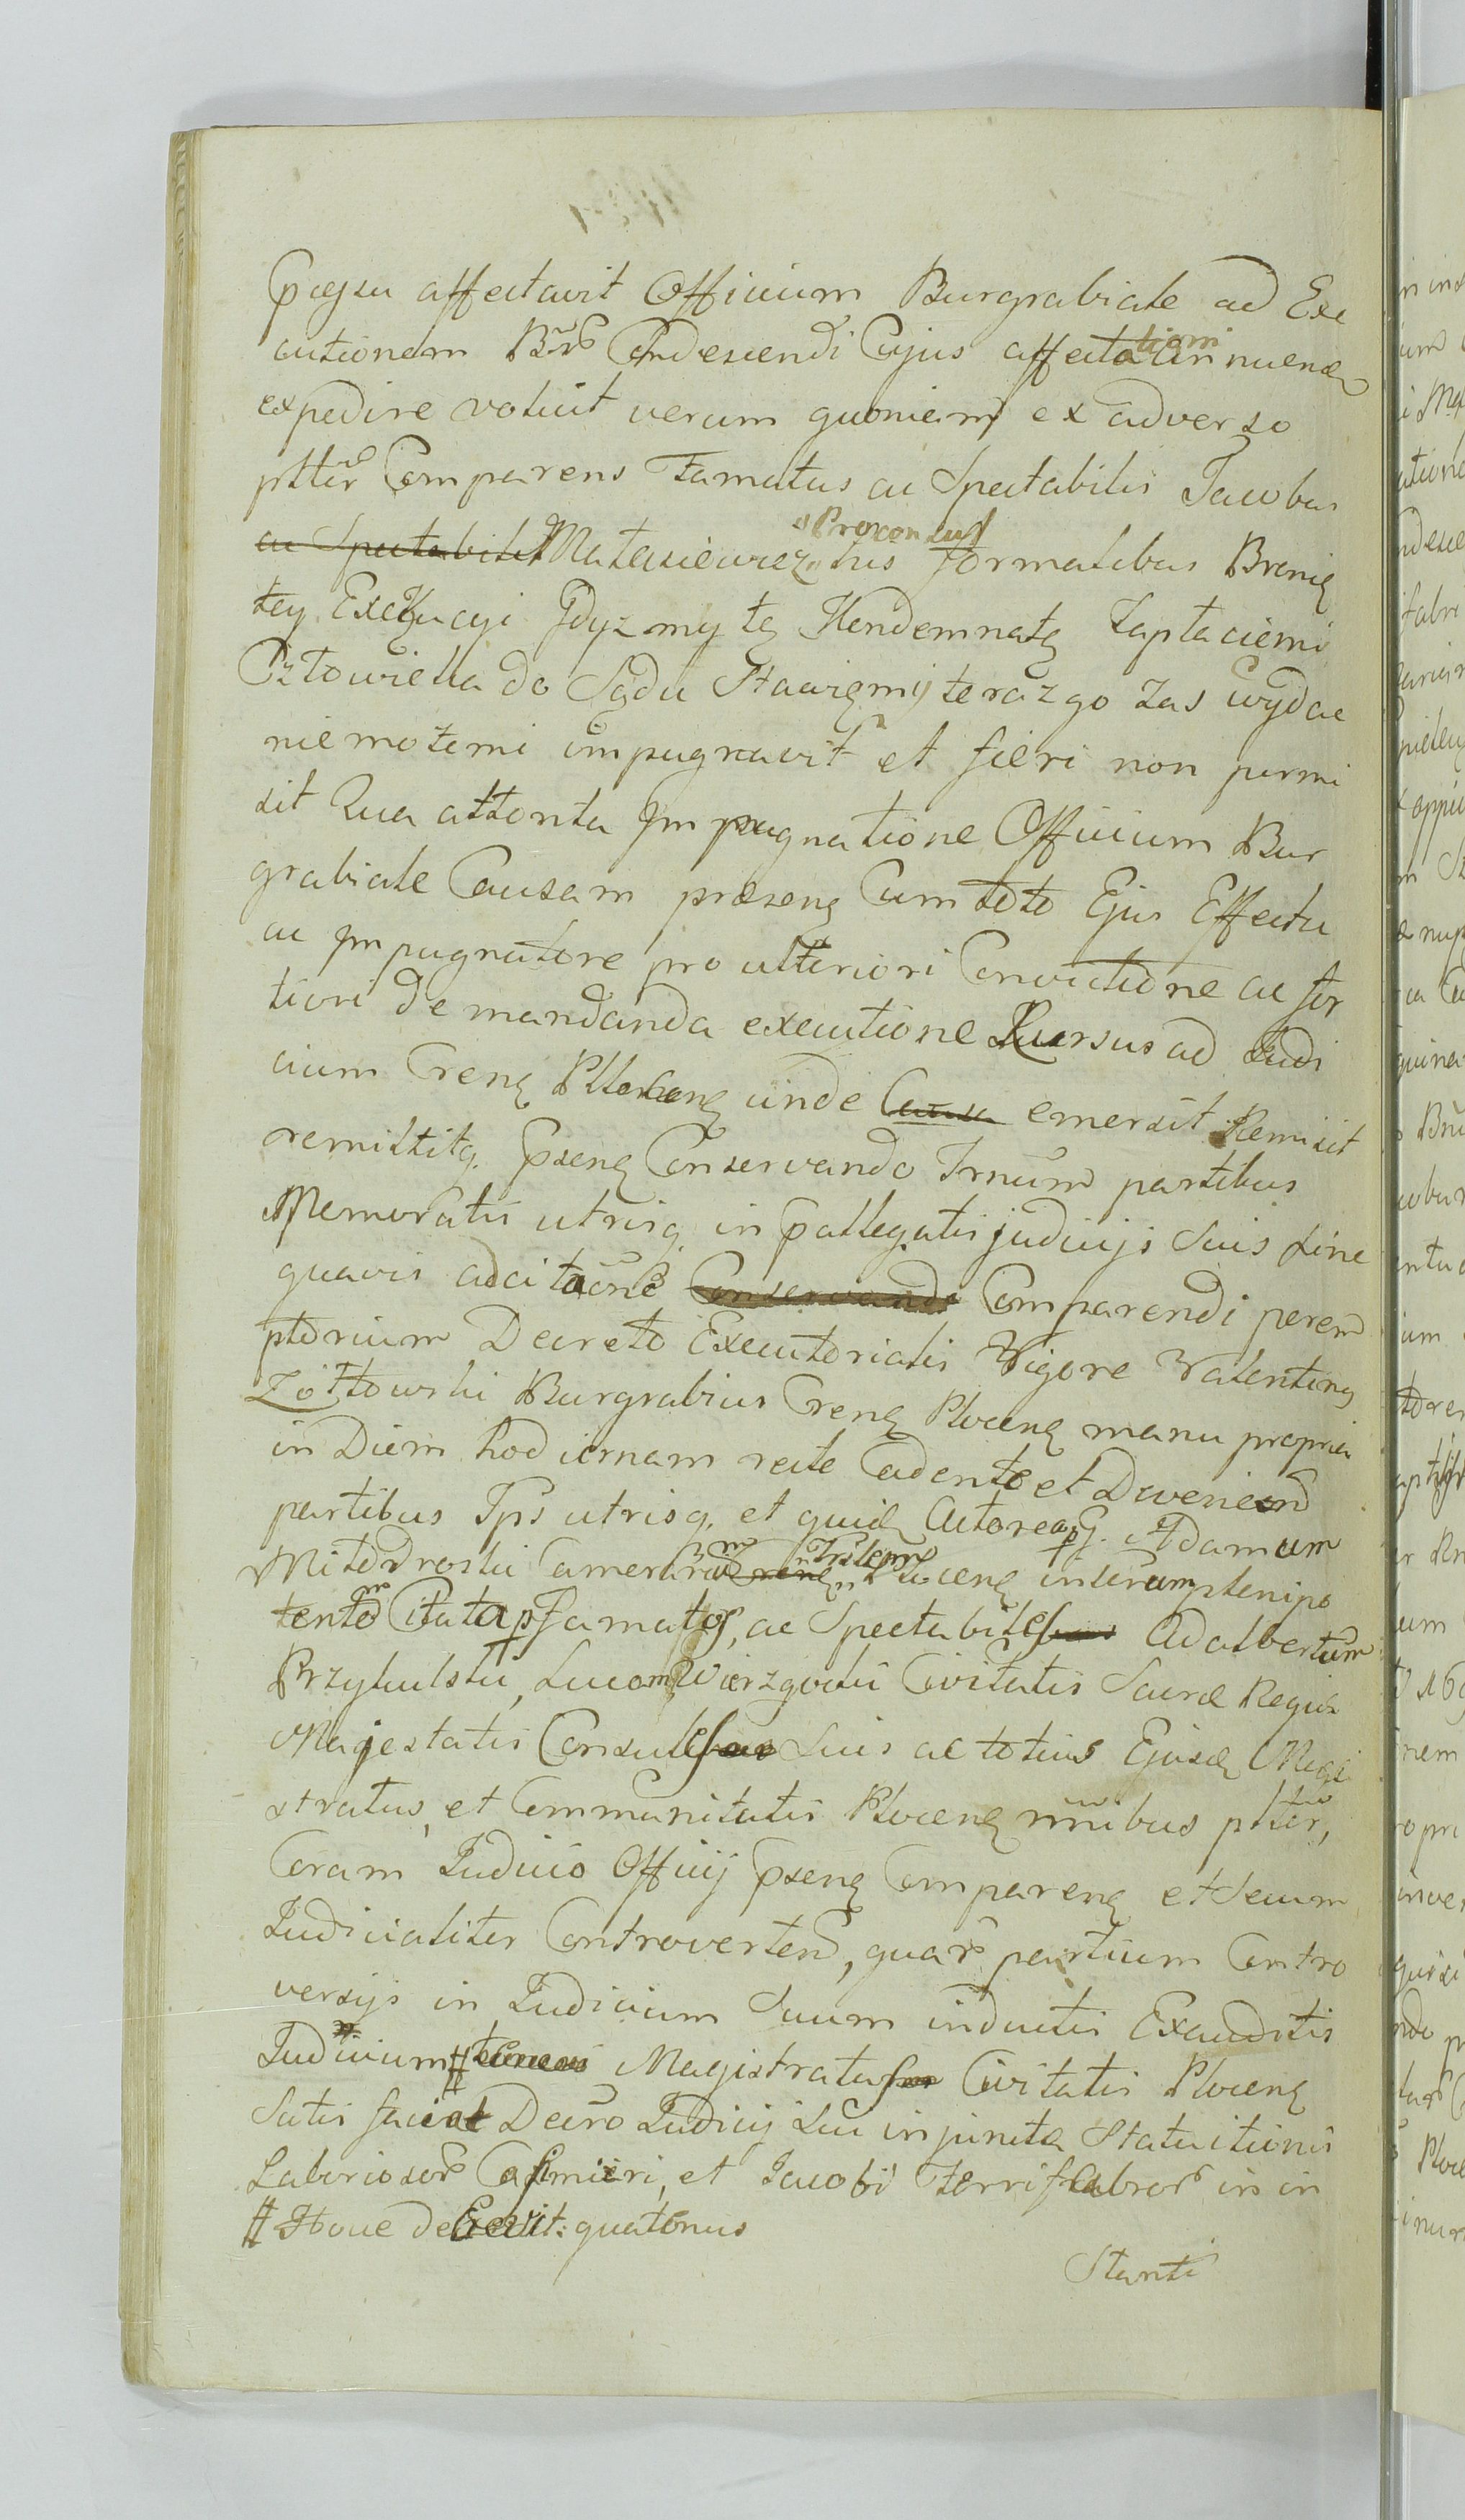 Spagsa affectavit Officium Burgrabiale ad Exe
cutionem Bnr Condescendi Cujus affectationi innuend
expedire voluit verum quoniam ex adverso
plltr Comparens Famatus ac Spectabilis Jacobus
ac Spectabilis Matasiewicz Proconsul his formalibus Bronię
tey Exekucyi Gdyz my tę Kondemnatę zapłaciemi
Człowieka do Sądu Stawięmy teraz go zas wydac
niemożemi impugnavit et fieri non permi
sit Qua attenta Impugnatione Officium Bur
grabiale Causam præsenę Cum toto Ejus Effectu
ac Impugnatore pro ulteriori Convictione ac for
tiori demandanda executione Rursus ad Judi
cium Crenę Plocenę unde Causa emersit Remisit
remittitq. Psenę Conservando Trnum partibus
Memoratis utrisq. in pallegatis judicijs Suis sine
quavis adcitaone Conservando Comparendi perem
ptorium Decreto Executorialis Vigore Valentinę
Zołtowski Burgrabius Crenę Plocenę manu propria
in Diem hodiernam recte Cadente et Deveniend
partibus Ips utrisq. et quidę Actorea p G. Adamum
Mitodroski Camerarium Crenę Trilem Plocenę interum plenipo
tentem Citata p Famatos, ac Spectabiles Adalbertum
Przybulski, Lucam Wierzgocki Civitatis Sacræ Regiæ
Majestatis Consules suis ac totius Ejusdę Magi
stratus, et Communitatis Plocenę nnibus plter,
Coram Judicio Officij Psenę Comparenę et Secum
Judicialiter Controvertend, quar partium Contro
versijs in Judicium Suum inductis Exauditis
Judicium # Magistratus Civitatis Plocenę
Satis faciat Decro Judicij Sui injuncta Statuitionis
Laboriosor Casmiri, et Jacobi Ferrifabror in in
# Hocce decrevit: quatenus
Stanti